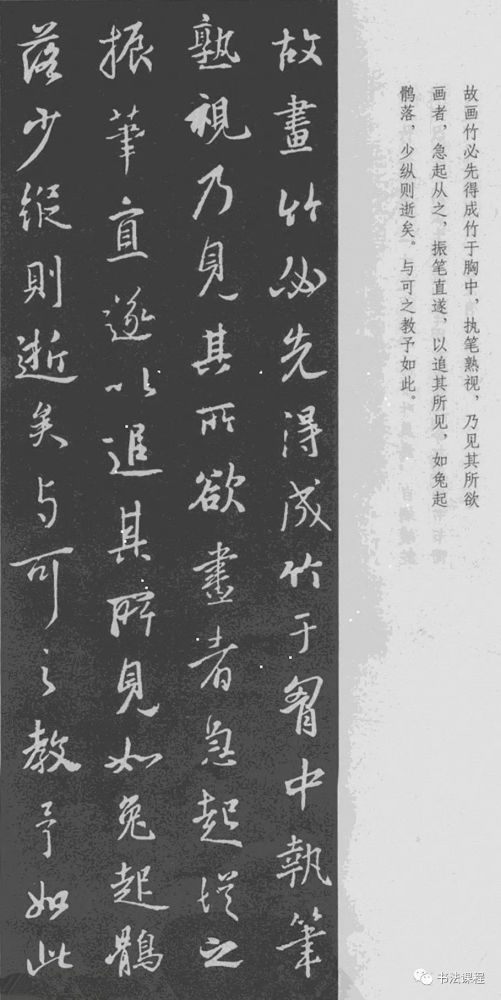 故画竹必先得成竹于胸中，执笔熟视，乃见其所欲
画者，急起从之，振笔直遂，以追其所见，如兔起
鹘落，少纵则逝矣。与可之教予如此。
故畫竹必先得成竹于胷中執筆
熟視乃見其所欲畫者急起從之
振筆直遂以追其所見如兔起鶻
落少縱則逝矣與可之教予如此
书法课程